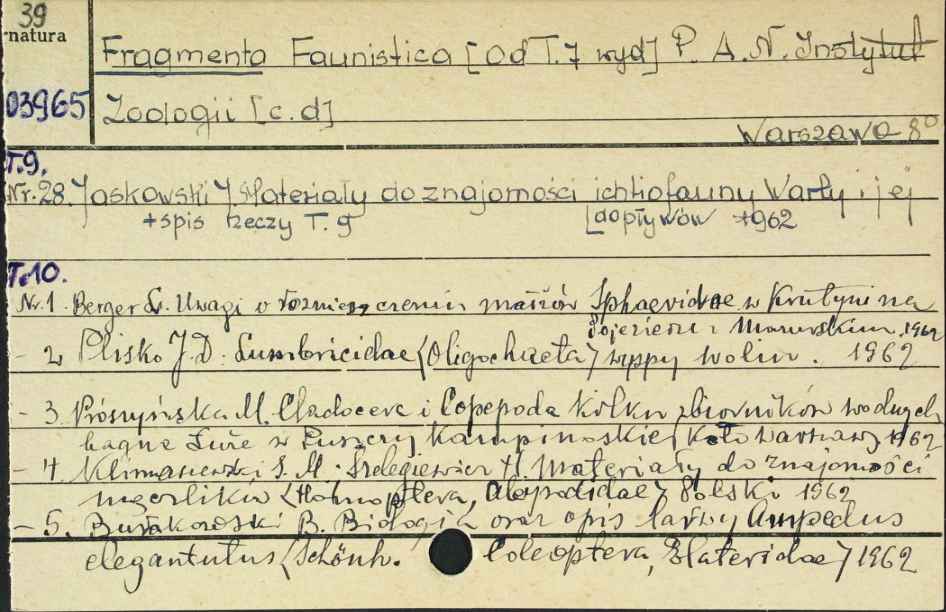 39
natura
03965
Fragmenta Faunistica [od T.7 wyd] P. A. N. Instytut
Zoologii [c.d]
Warszawa 8°
T.9.
Nr.28. Jaskowski J. Materiały do znajomości ichtiofauny Warty i jej
+spis rzeczy T. 9 [dopływów 1962
T.10.
Nr.1. Berger L. Uwagi o rozmieszczeniu małżów Sphaeridae w Krutyni na
Pojezierzu Mazurskim. 1962
- 2 Plisko J.D. Lumbricidae (Oligochaeta) wyspy Wolin. 1962
- 3 Prószyńska M. Cladocera i Copepoda kilku zbiorników wodnych
bagna Luże w Puszczy Kampinoskiej koło Warszawy 1962
- 4 Klimaszewski S. M. Szelegiewicz H. Materiały do znajomości
(Homoptera, ) Polski 1962
- 5. Burakowski B. Biologia oraz opis larwy Ampedus
elegantulus (Schönh. Coleoptera, Elateridae) 1962